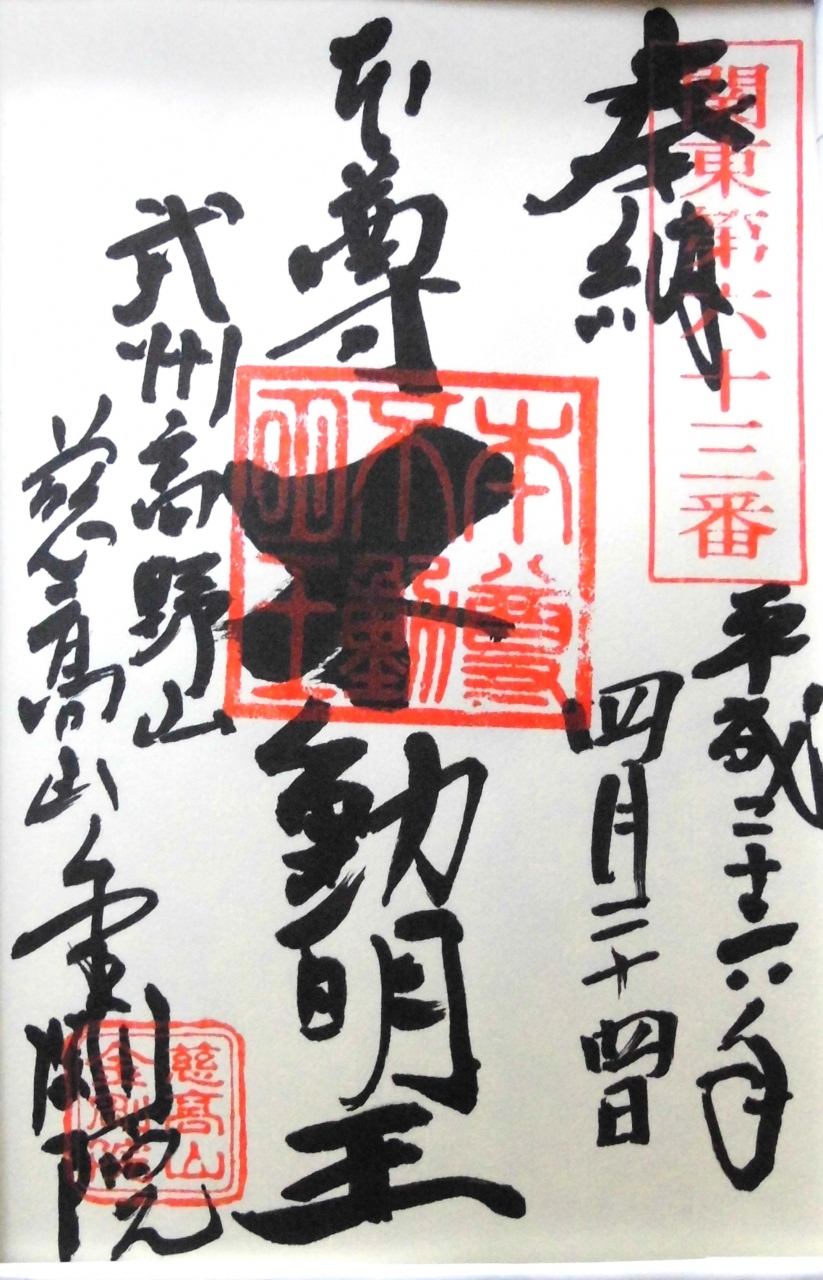 奉納
関東第六十三番
平成二十六年
四月二十四日
本尊
不動明王
本尊
不動
明王
武州高野山
慈高山金剛院
慈高山
金剛院